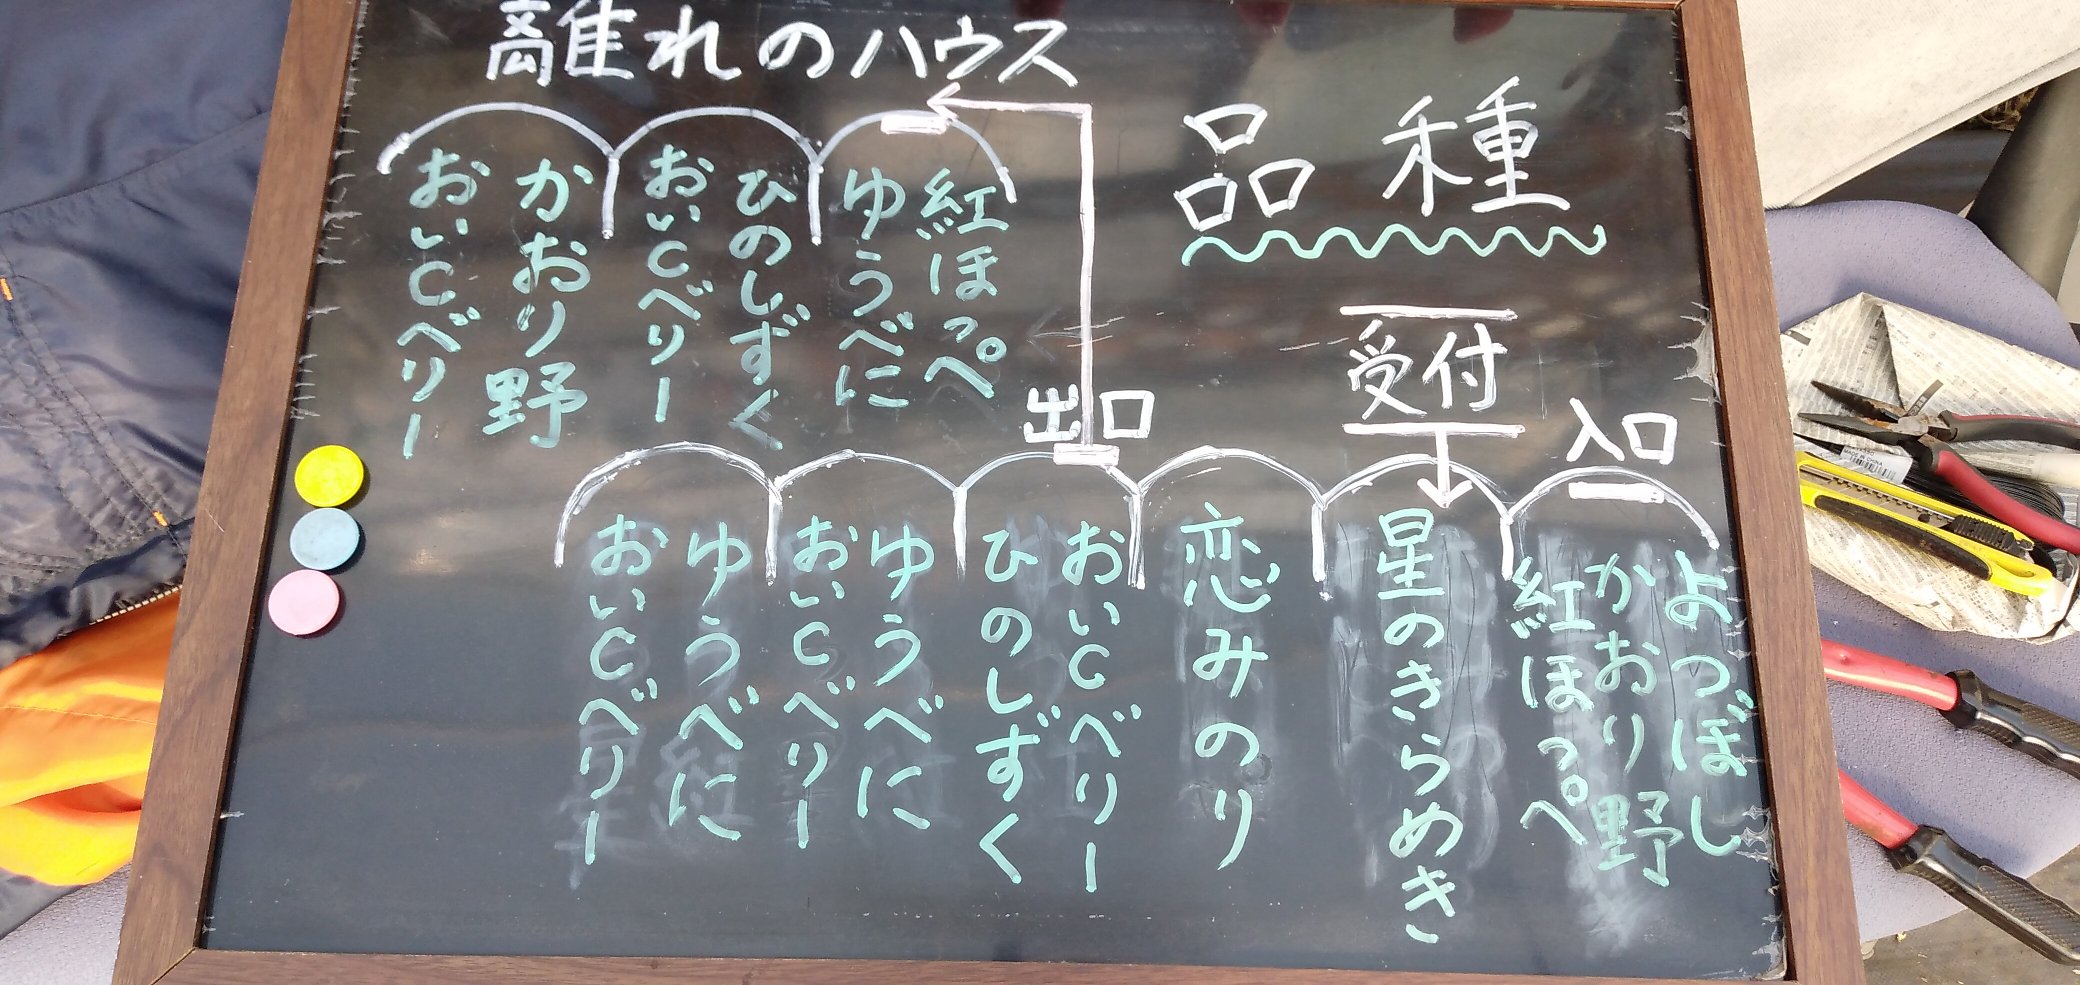 離れのハウス
品種
紅ほっぺ
ゆうべに
ひのしずく
おいCベリー
かおり野
おいCベリー
受付
入口
出口
よつぼし
かおり野
紅ほっぺ
星のきらめき
恋みのり
おいCベリー
ひのしずく
ゆうべに
おいCベリー
ゆうべに
おいCベリー